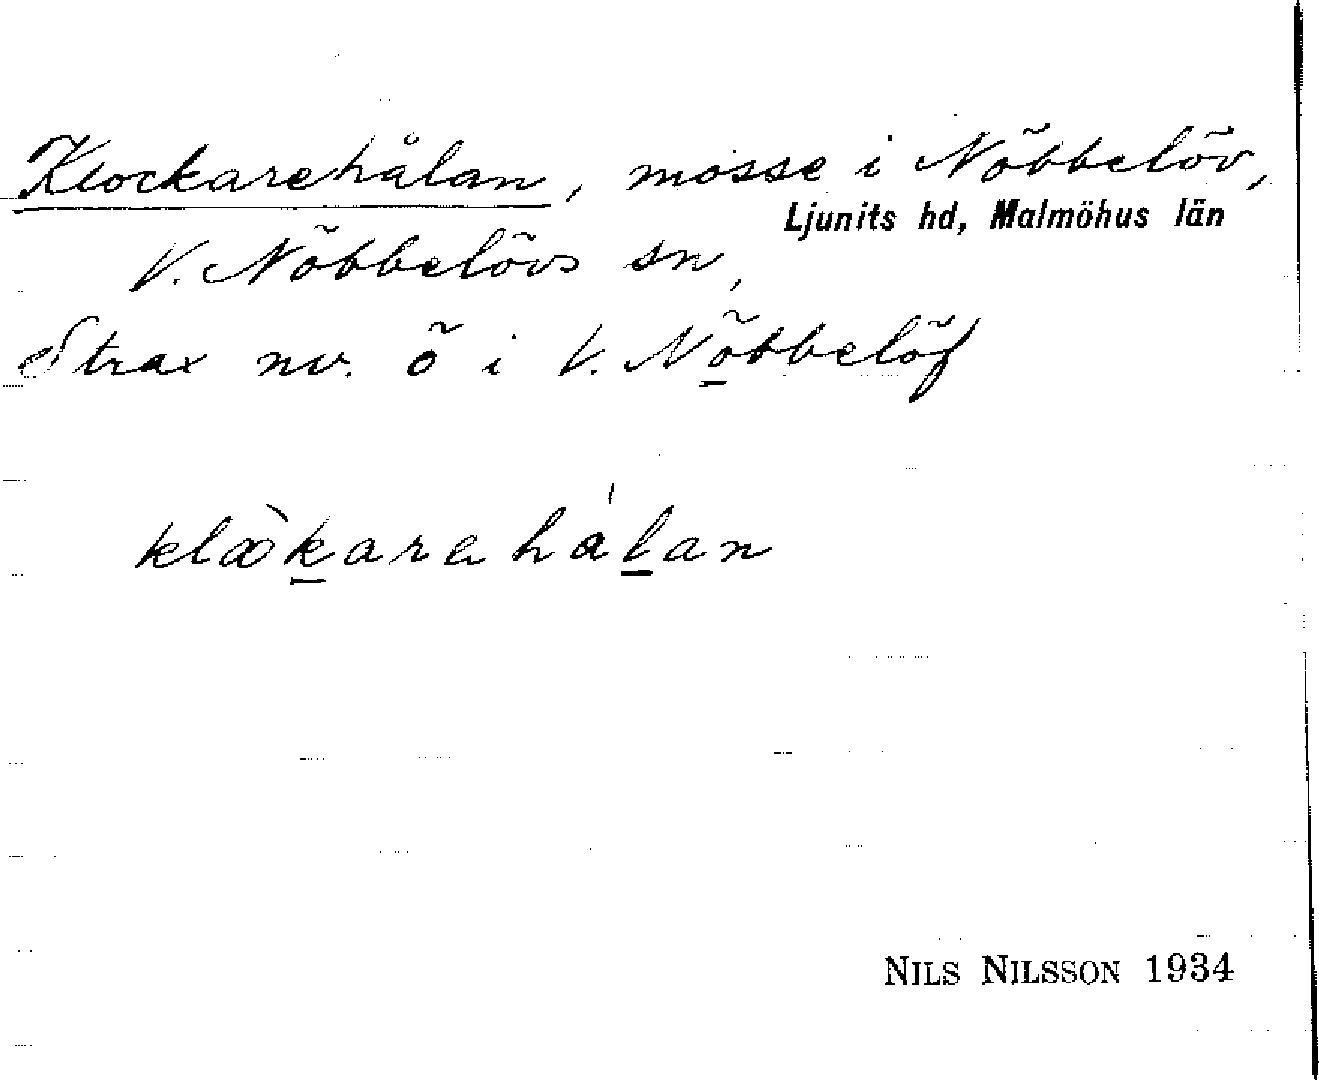 Klockarehålan, mosse i Nöbbelöv,
Ljunits hd, Malmöhus län
V. Nöbbelövs sn,
Strax nv. ö i V. Nöbbelöf
klæ̀karahálan
NILS NILSSON 1934